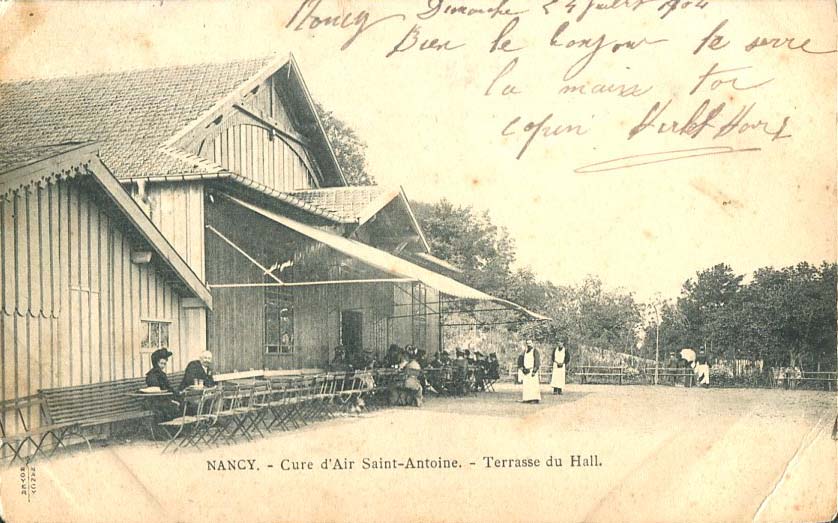 Nancy Dimanche 24 Juillet 1904
Bien le bonjour je serre
la main
copin
NANCY. - Cure d'Air Saint-Antoine. - Terrasse du Hall.
ROYER
NANCY